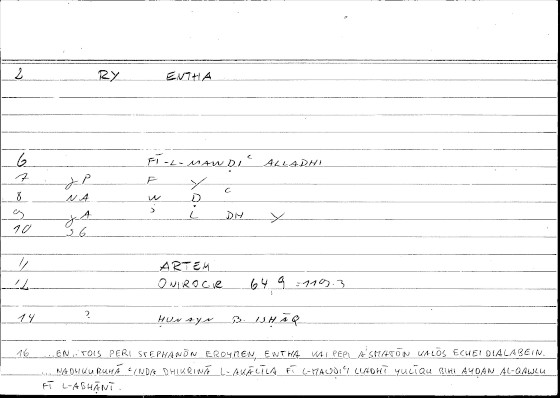 2 RY ENTHA
6 FĪ-L-MAWḌIʿ ALLADHI
7 gP F Y
8 NA W Ḍ ʿ
9 gA ʾ L DH Y
10 36
11 ARTEM
12 ONIROCR 64,9 = 119.3
14 ? ḤUNAYN B. ISḤĀQ
16 ...EN.. TOIS PERI STEPHANŌN EROYMEN, ENTHA KAI PERI ĀISMATŌN KALŌS ECHEI DIALABEIN.
... NADHKURUHĀ ʿINDA DHIKRINĀ L-AKĀLĪLA FĪ L-MAWḌIʿI LLADHĪ YULĪQU BIHI AYḌAN AL-QAWLU
FĪ L-AGHĀNĪ.